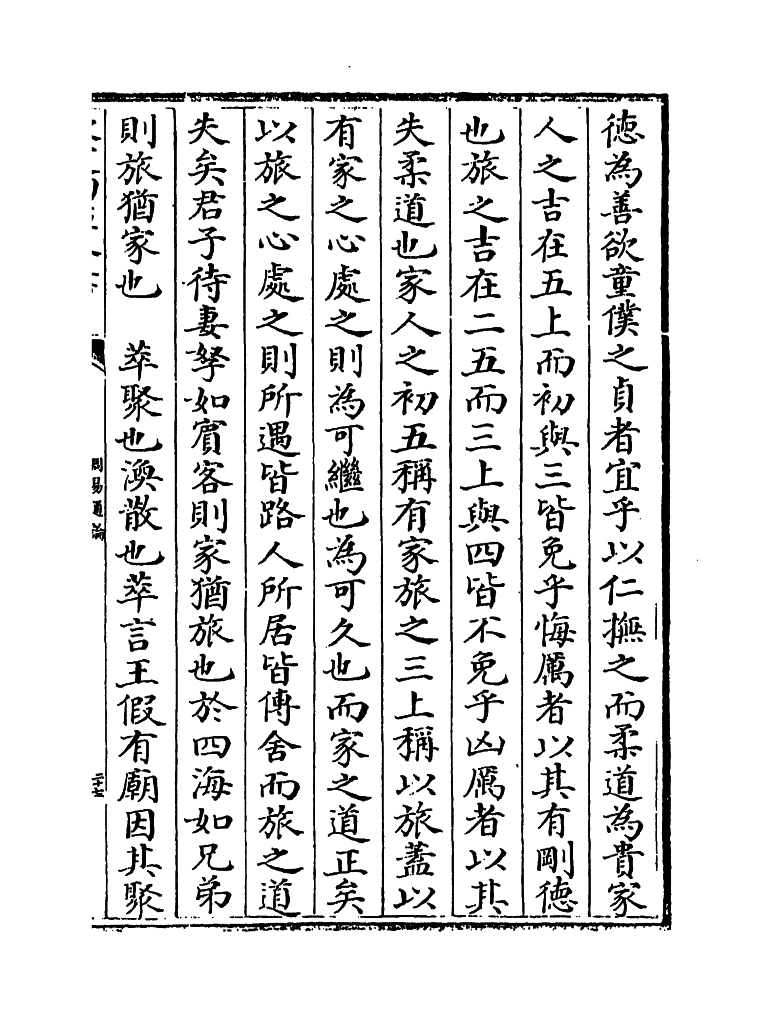 德為善欲童僕之貞者宜乎以仁撫之而柔道為貴家
人之吉在五上而初與三皆免乎悔厲者以其有剛德
也旅之吉在二五而三上與四皆不免乎凶厲者以其
失柔道也家人之初五稱有家旅之三上稱以旅蓋以
有家之心處之則為可繼也為可久也而家之道正矣
以旅之心處之則所遇皆路人所居皆傳舍而旅之道
失矣君子待妻孥如賓客則家猶旅也於四海如兄弟
則旅猶家也　萃聚也渙散也萃言王假有廟因其聚
周易通論